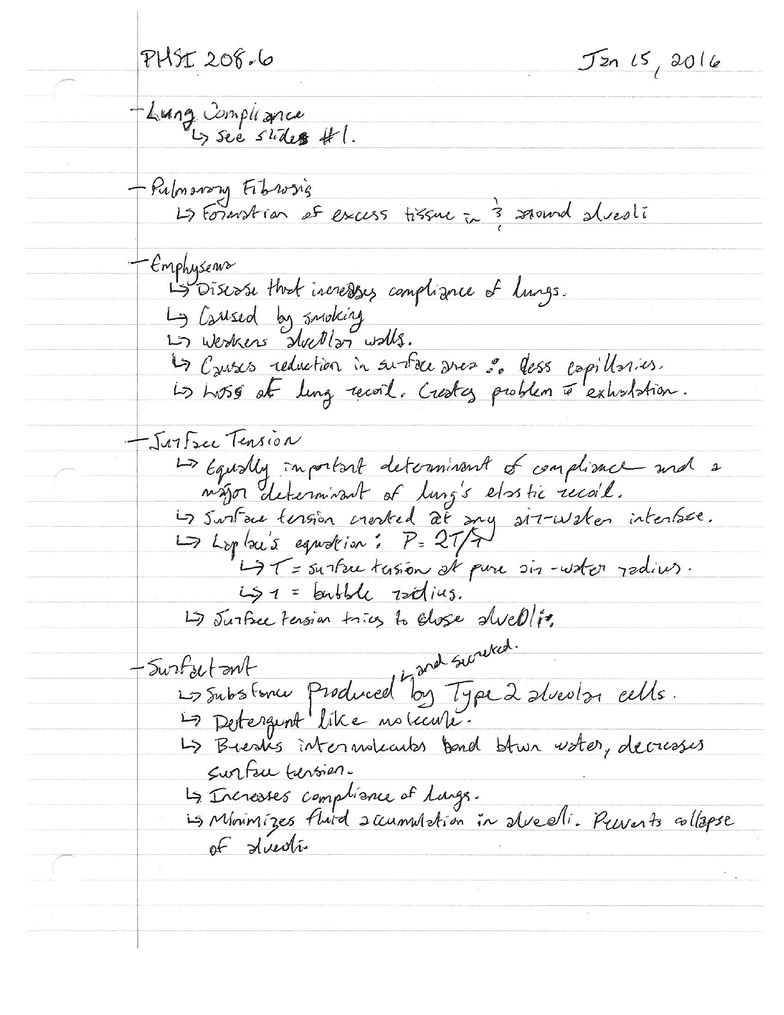 PHSI 208.6 Jan 15, 2016
- Lung Compliance
↳ see slides #1.
- Pulmonary Fibrosis
↳ Formation of excess tissue in & around alveoli
- Emphysema
↳ Disease that increases compliance of lungs.
↳ Caused by smoking
↳ Weakens alveolar walls.
↳ Causes reduction in surface area ∴ less capillaries.
↳ Loss of lung recoil. Creates problem in exhalation.
- Surface Tension
↳ Equally important determinant of compliance and a
major determinant of lung's elastic recoil.
↳ Surface tension created at any air-water interface.
↳ Laplace's equation: P = 2T/r
↳ T = surface tension at pure air-water radius.
↳ r = bubble radius.
↳ Surface tension tries to close alveoli.
- Surfactant
and secreted.
↳ Substance produced by Type 2 alveolar cells.
↳ Detergent like molecule.
↳ Breaks intermolecular bond btwn water, decreases
surface tension.
↳ Increases compliance of lungs.
↳ Minimizes fluid accumulation in alveoli. Prevents collapse
of alveoli.